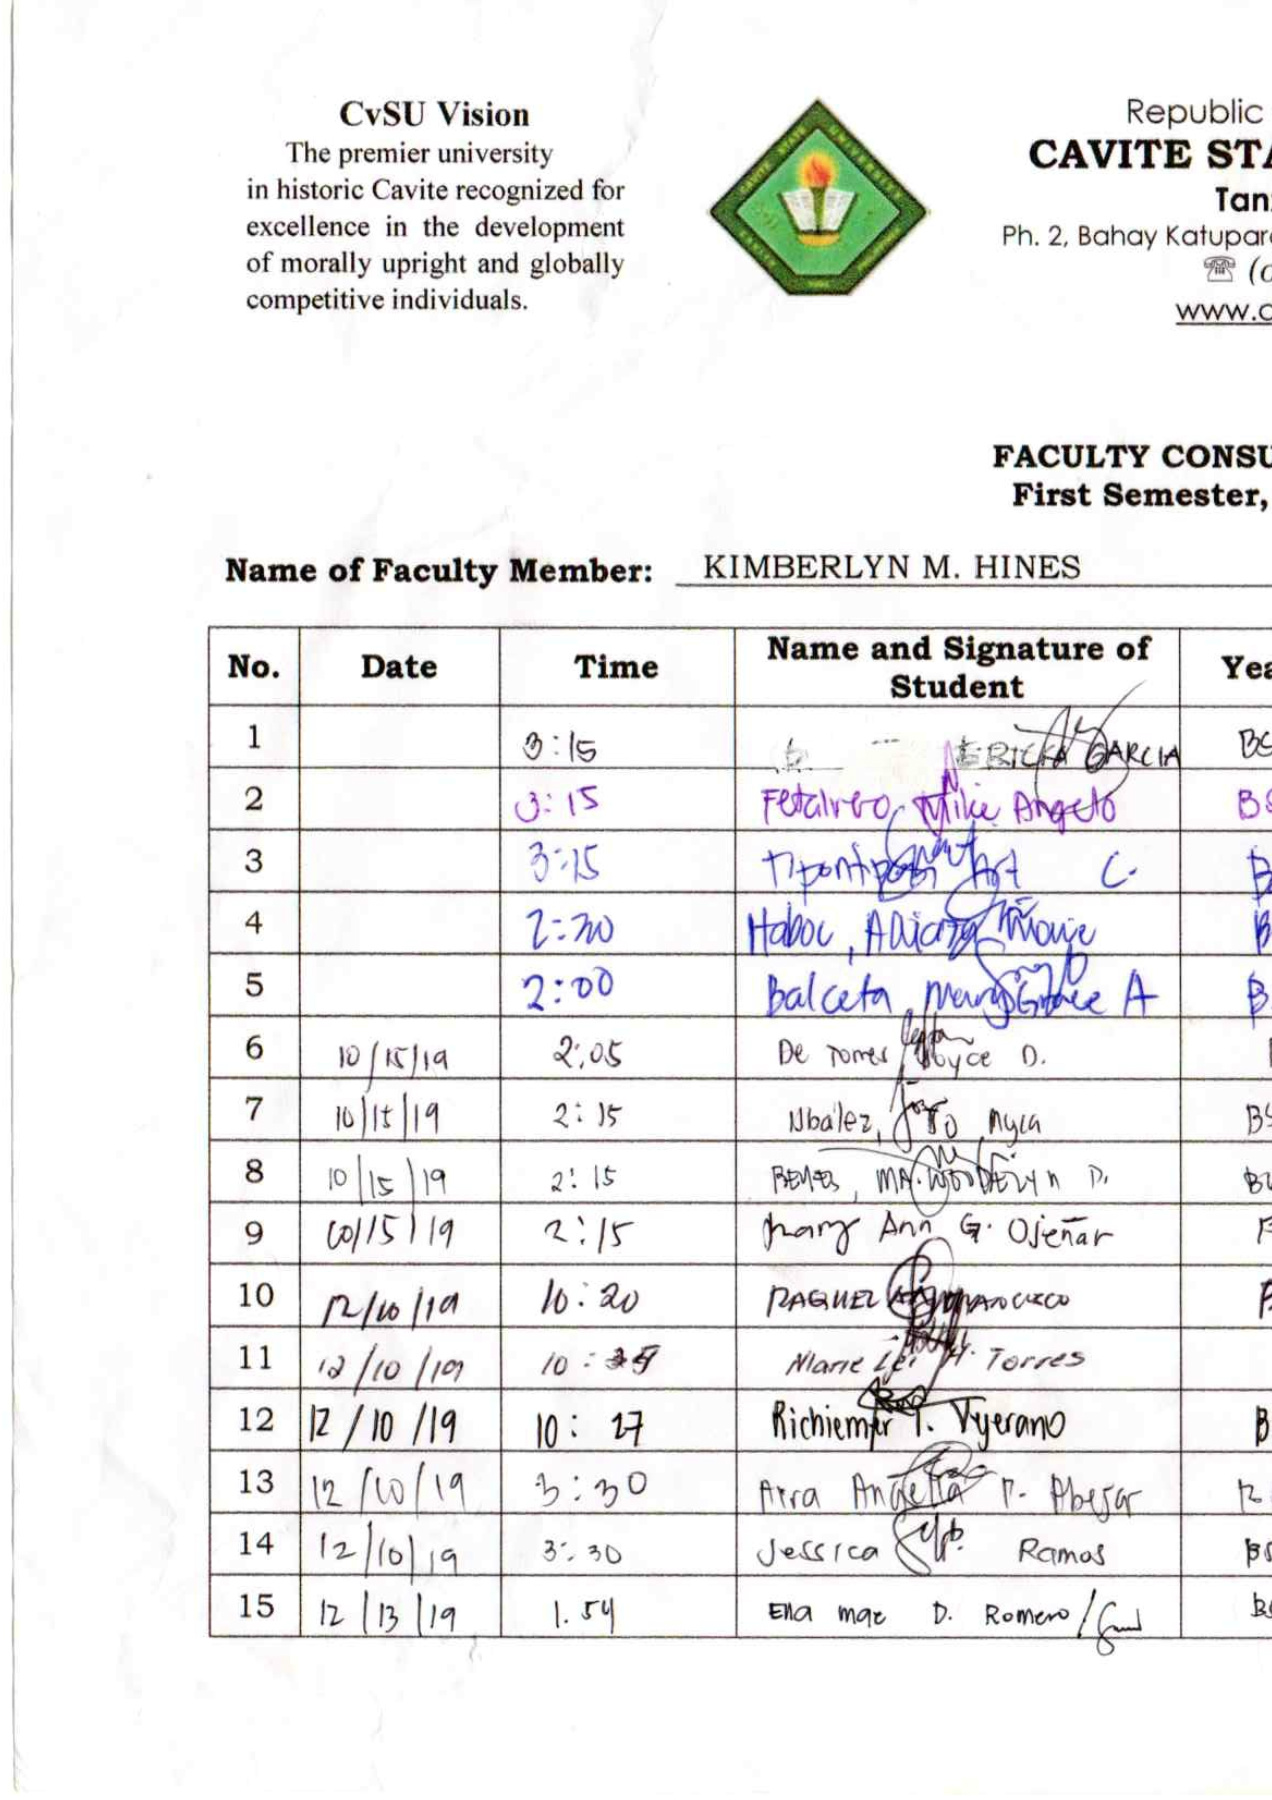 CvSU Vision
The premier university
in historic Cavite recognized for
excellence in the development
of morally upright and globally
competitive individuals.
Republic
CAVITE STA
Tanz
Ph. 2, Bahay Katupara
(0
www.c
FACULTY CONSU
First Semester,
Name of Faculty Member: KIMBERLYN M. HINES
No. Date Time Name and Signature of Student Yea
1 3:15 ERICKA GARCIA BS
2 3:15 Fetalvero, Mike Angelo BS
3 3:15 Art C. B
4 2:30 Haboc, B
5 2:00 Balceta, Mary Grace A B
6 10/15/19 2:05 De Torres, Joyce D.
7 10/15/19 2:15 Nbalez, Myca BS
8 10/15/19 2:15 MA. WOODELYN D. BS
9 10/15/19 2:15 Mary Ann G. Ojeñar
10 12/10/19 10:20 RAQUEL FRANCISCO
11 12/10/19 10: Marie Lei H. Torres
12 12/10/19 10:27 Richiemer T. Vyerano B
13 12/10/19 3:30 Arra Angella P. Abejar
14 12/10/19 3:30 Jessica Ramos BS
15 12/13/19 1.54 Ella mae D. Romero/ BS